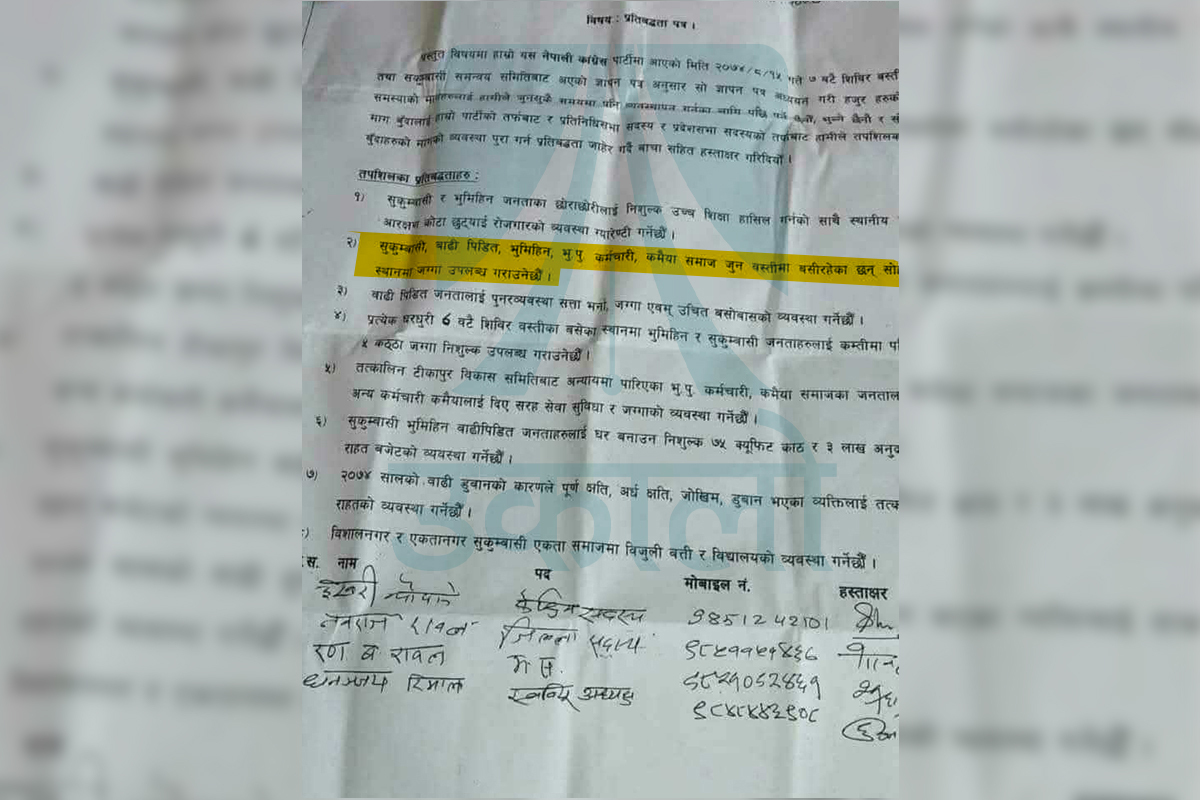 विषय : प्रतिबद्धता पत्र ।
प्रस्तुत विषयमा हाम्रो यस नेपाली कांग्रेस पार्टीमा आएको मिति २०७४/८/१५ गते ७ वटै शिविर बस्ती
तथा सुकुम्बासी समन्वय समितिबाट अएको ज्ञापन पत्र अनुसार सो ज्ञापन पत्र अध्ययन गरी हजुर हरुको
समस्याको मागहरुलाई हामीले जुनसुकै समयमा पनि व्यवस्थापन गर्नका लागि पछि पर्ने छैनौ, भुल्ने छैनौ र
माग बुँदालाई हाम्रो पार्टीको तर्फबाट र प्रतिनिधिसभा सदस्य र प्रदेशसभा सदस्यको तर्फबाट हामीले तपशिलका
बुँदाहरुको मागको व्यवस्था पुरा गर्न प्रतिबद्धता जाहेर गर्दै बाचा सहित हस्ताक्षर गरिदियौं ।
तपशिलका प्रतिबद्धताहरु :
१) सुकुम्बासी र भुमिहिन जनताका छोराछोरीलाई निशुल्क उच्च शिक्षा हासिल गर्नको साथै स्थानीय
आरक्षण कोटा छुट्याई रोजगारको व्यवस्था ग्यारेण्टी गर्नेछौं ।
२) सुकुम्बासी, बाढी पिडित, भुमिहिन, भु.पु. कर्मचारी, कमैया समाज जुन वस्तीमा बसीरहेका छन् सोही
स्थानमा जग्गा उपलब्ध गराउनेछौं ।
३) बाढी पिडित जनतालाई पुनरव्यवस्था सत्ता भर्ना, जग्गा एवम् उचित बसोबासको व्यवस्था गर्नेछौं ।
४) प्रत्येक घरधुरी 6 वटै शिविर वस्तीका बसेका स्थानमा भुमिहिन र सुकुम्बासी जनताहरुलाई कम्तीमा
५ कठ्ठा जग्गा निशुल्क उपलब्ध गराउनेछौं ।
५) तत्कालिन टीकापुर विकास समितिबाट अन्यायमा पारिएका भु.पु. कर्मचारी, कमैया समाजका
अन्य कर्मचारी कमैयालाई दिए सरह सेवा सुविधा र जग्गाको व्यवस्था गर्नेछौं ।
६) सुकुम्बासी भुमिहिन वाढीपिडित जनताहरुलाई घर बनाउन निशुल्क ७५ क्यूफिट काठ र ३ लाख
राहत बजेटको व्यवस्था गर्नेछौं ।
७) २०७४ सालको वाढी डुबानको कारणले पूर्ण क्षति, अर्ध क्षति, जोखिम, डुबान भएका व्यक्तिलाई
राहतको व्यवस्था गर्नेछौं ।
विशालनगर र एकतानगर सुकुम्बासी एकता समाजमा विजुली वत्ती र विद्यालयको व्यवस्था गर्नेछौं ।
स. नाम पद मोबाइल नं. हस्ताक्षर
केन्द्रिय सदस्य 9851242101
जिल्ला सदस्य
रण ब. रावल
धनञ्जय रिमाल
उकालो